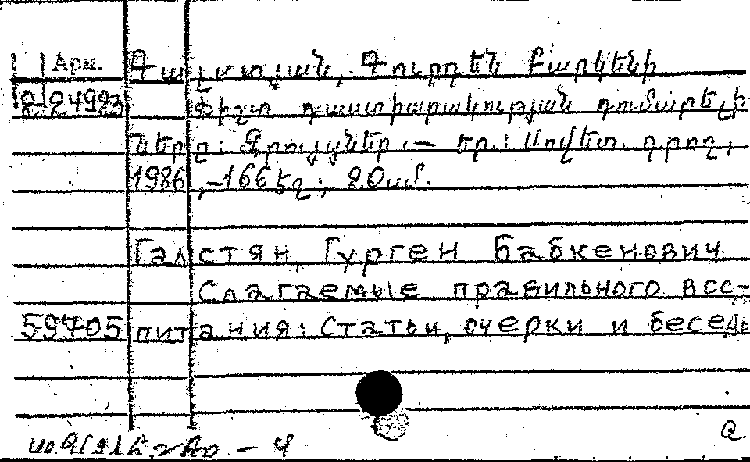 Арм. Գալստյան, Գուրգեն Բաբկենի
2-24993 Ճիշտ դաստիարակության գումարելի
ները: Զրույցներ.— Եր.: Սովետ. գրող,
1986,—166 էջ; 20սմ.
Галстян, Гурген Бабкенович
Слагаемые правильного вос-
59705 питания: Статьи, очерки и бесед
— 4